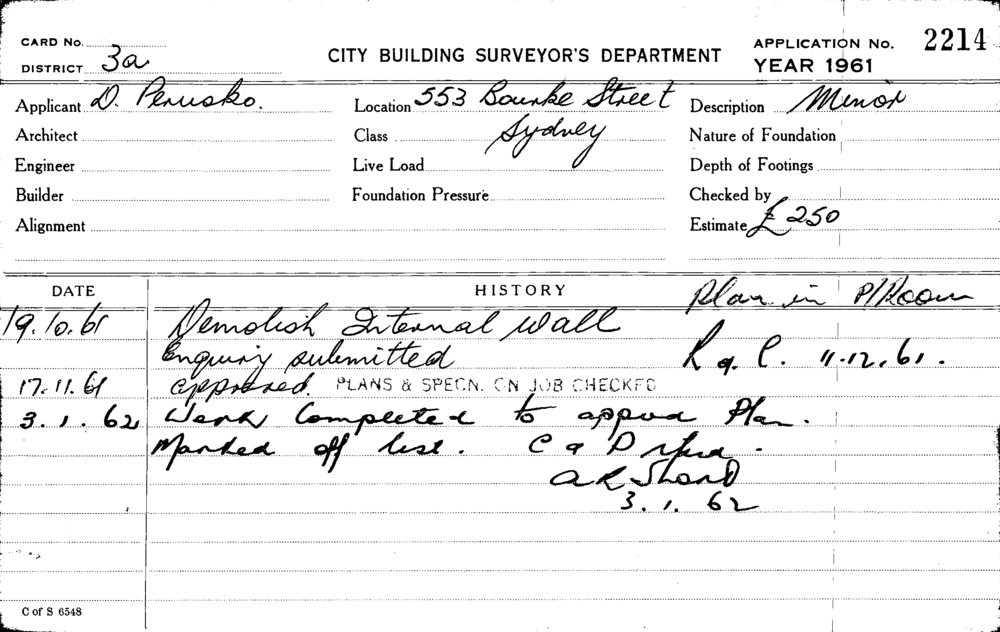 CARD No.
DISTRICT 3a
CITY BUILDING SURVEYOR'S DEPARTMENT
APPLICATION No. 2214
YEAR 1961
Applicant D. Perusko.
Location 553 Bourke Street
Description Minor
Architect
Class Sydney
Nature of Foundation
Engineer
Live Load
Depth of Footings
Builder
Foundation Pressure
Checked by
Alignment
Estimate £250
DATE
HISTORY
Plan in P/Room
19.10.61 Demolish Internal wall
Enquiry submitted R & C. 11.12.61.
17.11.61 approved. PLANS & SPECN. ON JOB CHECKED
3.1.62 Work Completed to appvd Plan.
Marked off list. C & D
3.1.62
C of S 6548